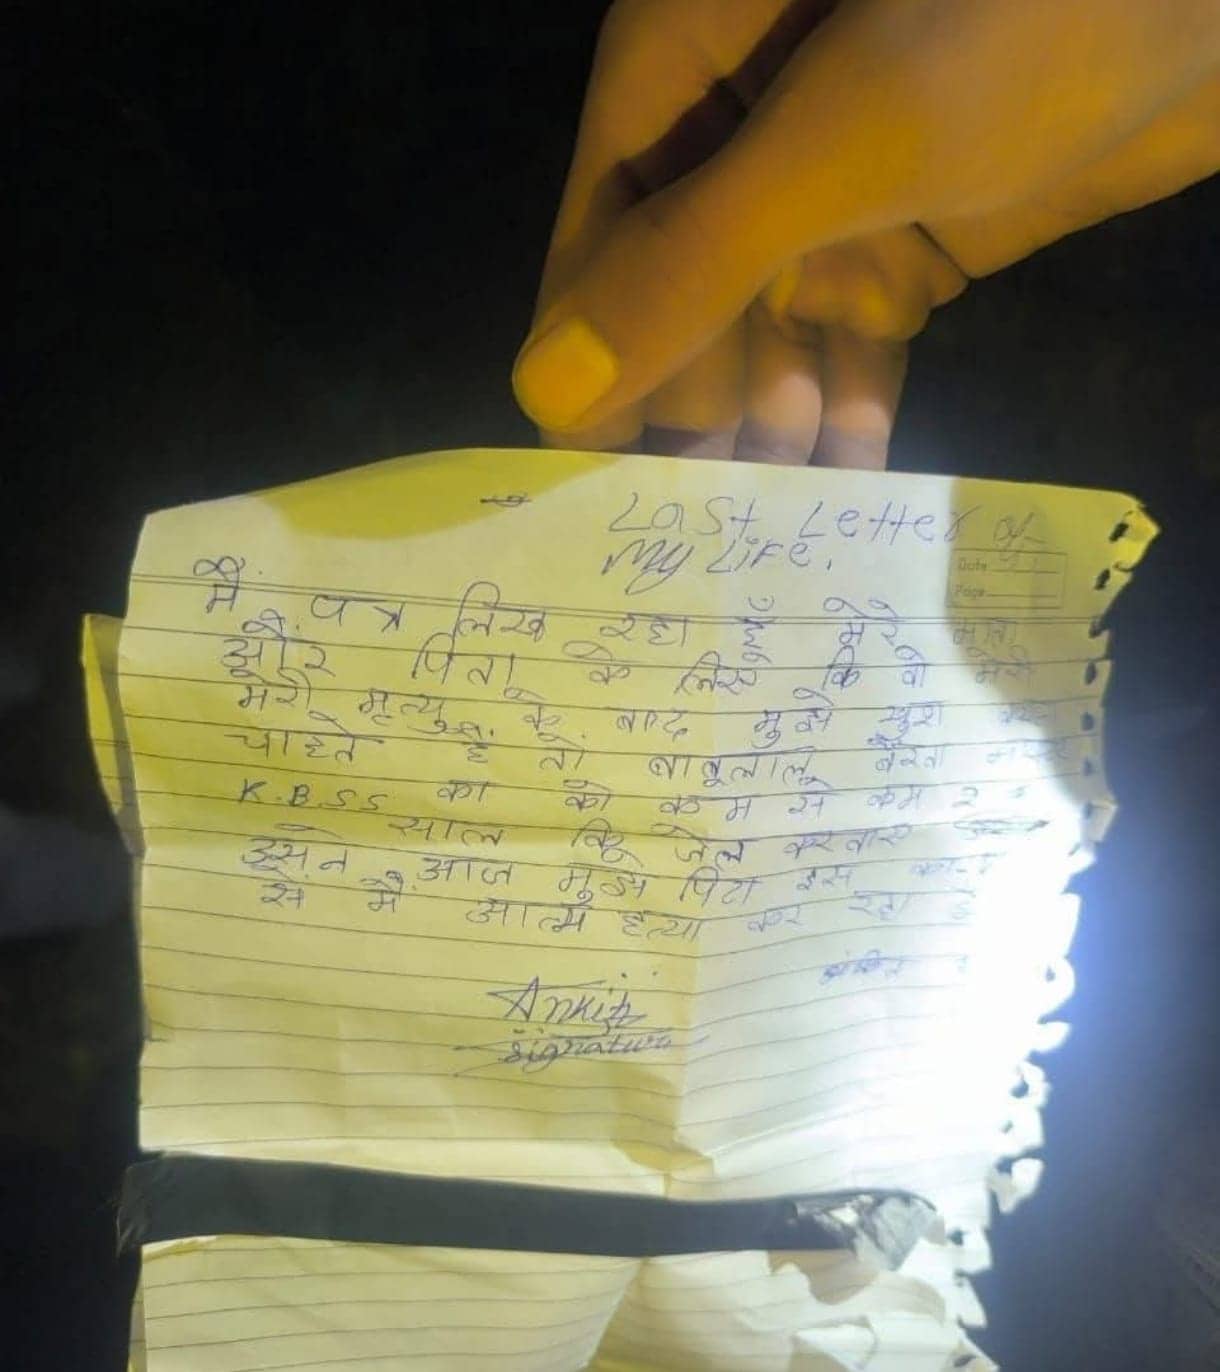 Last Letter of
My Life.
Date
Page
मैं पत्र लिख रहा हूँ मेरे माता
और पिता के लिए कि वो मेरी
मेरी मृत्यु के बाद मुझे खुश
चाहते हैं तो बाबूलाल
K.B.S.S का को कम से कम
साल कि जेल करवाए
इसने आज मुझे पिटा इस
से मैं आत्म हत्या कर रहा
Ankit
signature